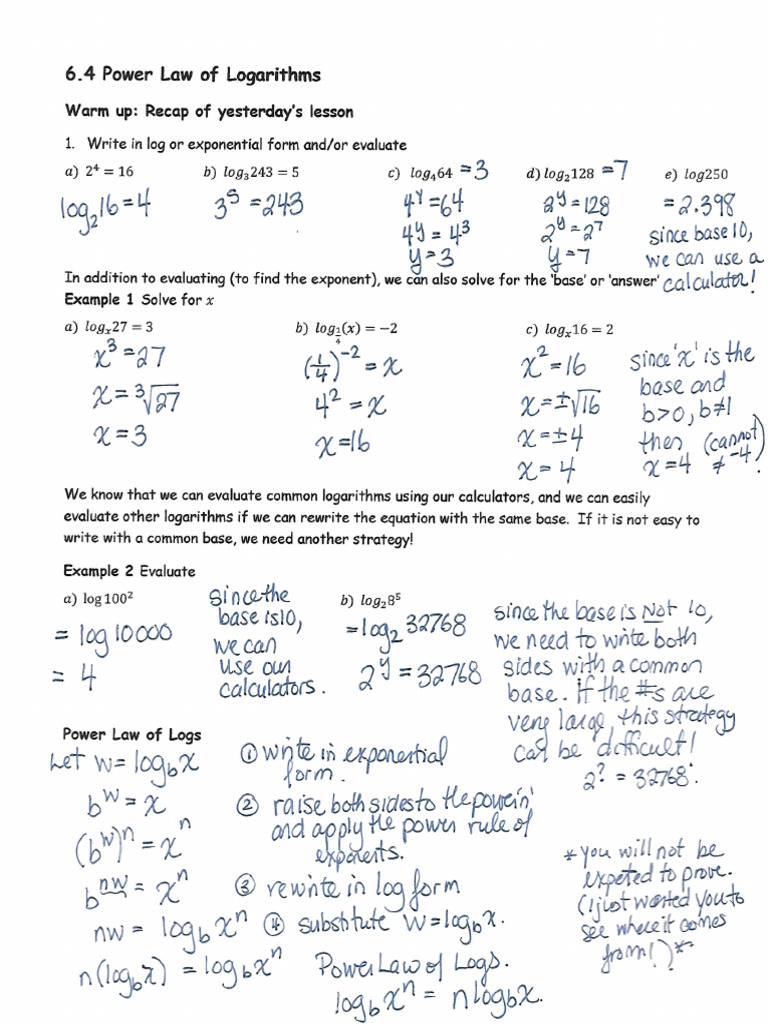 6.4 Power Law of Logarithms
Warm up: Recap of yesterday's lesson
1. Write in log or exponential form and/or evaluate
a) 2⁴ = 16 b) log₃243 = 5 c) log₄64 = 3 d) log₂128 = 7 e) log250
log₂16 = 4 3⁵ = 243 4^y = 64 2^y = 128 = 2.398
4^y = 4³ 2^y = 2⁷ since base 10,
y = 3 y = 7 we can use a
calculator!
In addition to evaluating (to find the exponent), we can also solve for the 'base' or 'answer'
Example 1 Solve for x
a) logₓ27 = 3 b) log_{1/4}(x) = −2 c) logₓ16 = 2
x³ = 27 (1/4)⁻² = x x² = 16
x = ³√27 4² = x x = ±√16
x = 3 x = 16 x = ±4
x = 4
since 'x' is the
base and
b>0, b≠1
then (cannot)
x=4 ≠ -4
We know that we can evaluate common logarithms using our calculators, and we can easily
evaluate other logarithms if we can rewrite the equation with the same base. If it is not easy to
write with a common base, we need another strategy!
Example 2 Evaluate
a) log 100² b) log₂8⁵
= log 10000 = log₂ 32768
= 4 2^y = 32768
since the
base is 10,
we can
use our
calculators.
since the base is Not 10,
we need to write both
sides with a common
base. If the #s are
very large, this strategy
can be difficult!
2^? = 32768.
Power Law of Logs
Let w = log_b x ① write in exponential
form.
b^w = x ② raise both sides to the power 'n'
(b^w)^n = x^n and apply the power rule of
exponents.
b^{nw} = x^n ③ rewrite in log form
nw = log_b x^n ④ substitute w = log_b x.
n(log_b x) = log_b x^n Power Law of Logs.
log_b x^n = n log_b x.
* you will not be
expeted to prove.
(I just wanted you to
see where it comes
from!) *